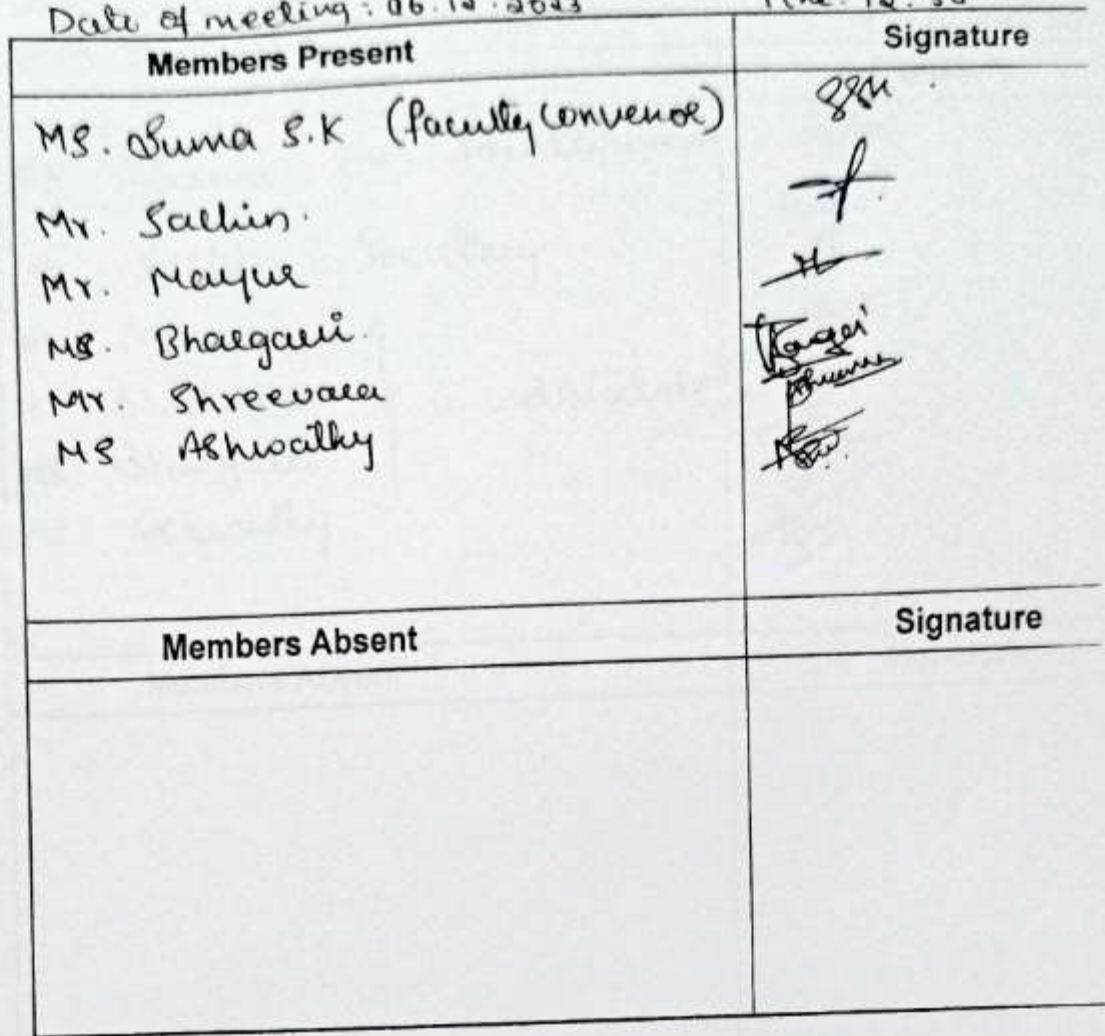 Date of meeting: 06.12.2023
Members Present Signature
MS. Suma S.K (faculty convenor)
Mr. Sachin.
Mr. Mayur
MS. Bhargavi.
Mr. Shreevara
MS Ashwathy
Members Absent Signature